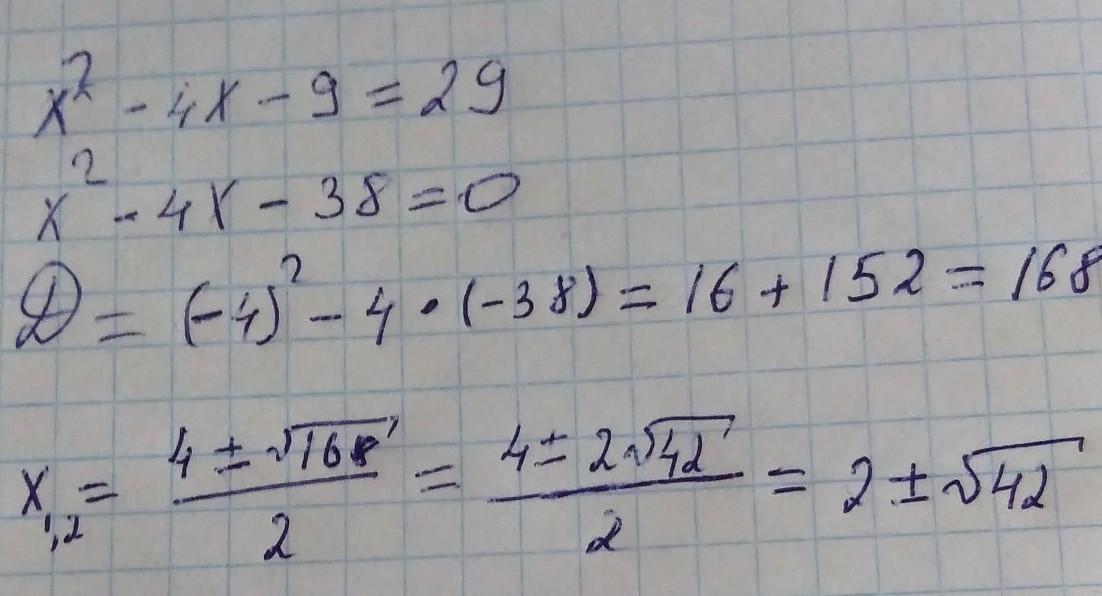 x² - 4x - 9 = 29
x² - 4x - 38 = 0
D = (-4)² - 4 · (-38) = 16 + 152 = 168
x₁,₂ = (4 ± √168)/2 = (4 ± 2√42)/2 = 2 ± √42